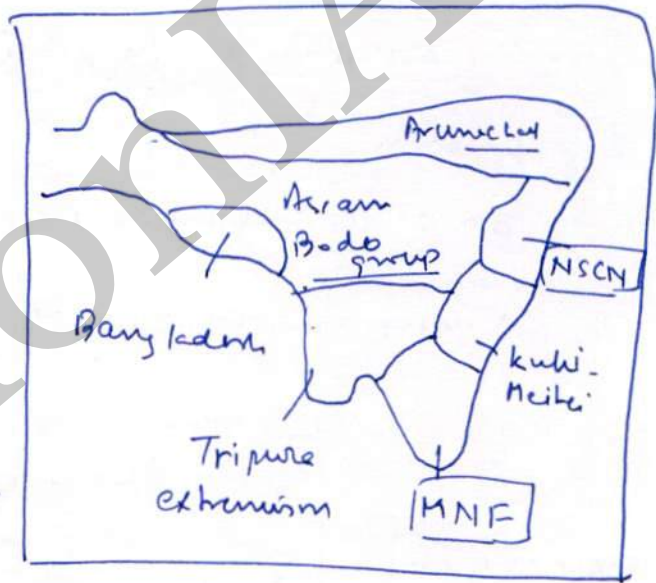 Arunachal
Assam
Bodo
group
NSCN
Bangladesh
Kuki-
Meitei
Tripura
extremism
MNF